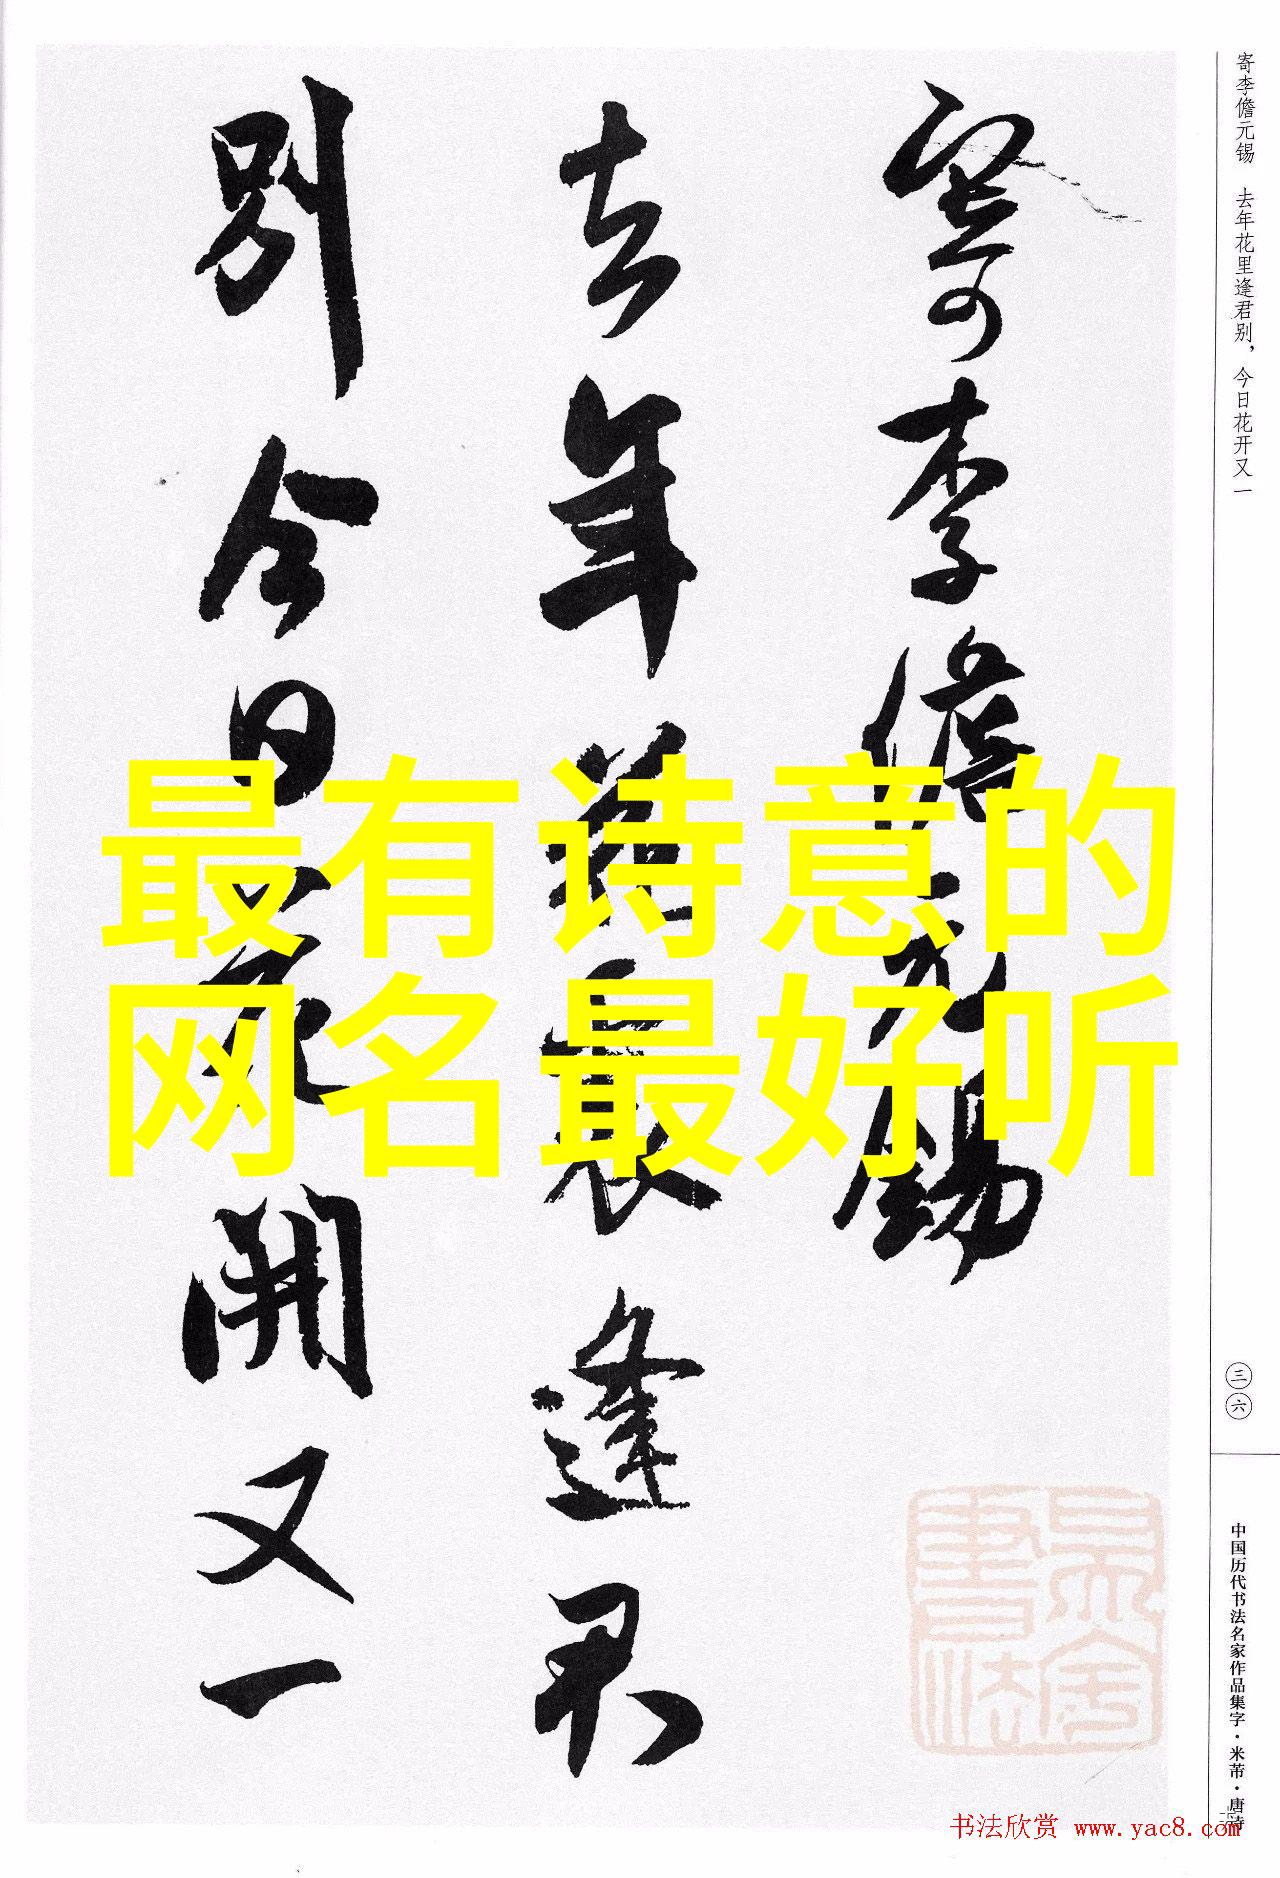 寄李儋元锡　去年花里逢君别，今日花开又一
寄李儋元錫
去年花裏逢君
別今日花開又一
最有诗意的
网名最好听
三六
中国历代书法名家作品集字·米芾·唐诗
书法欣赏 www.yac8.com